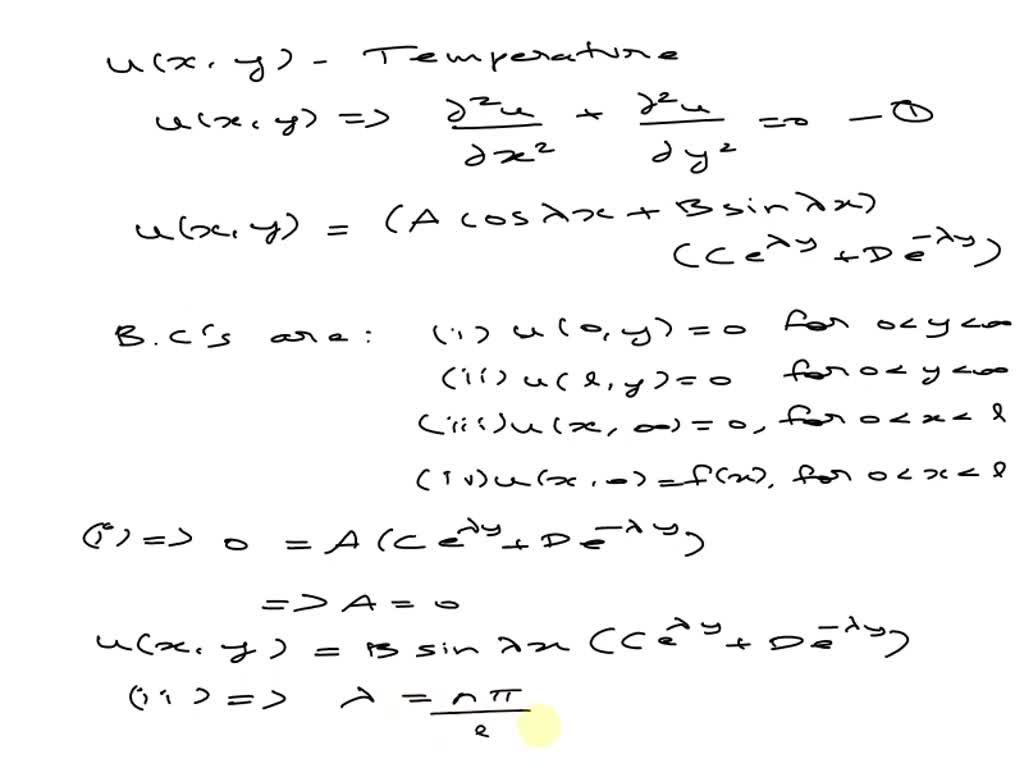 u(x, y) - Temperature
u(x, y) => ∂²u/∂x² + ∂²u/∂y² = 0 - ①
u(x, y) = (A cos λx + B sin λx)
(C e^{λy} + D e^{-λy})
B.C's are: (i) u(0, y) = 0 for 0 < y < ∞
(ii) u(l, y) = 0 for 0 < y < ∞
(iii) u(x, ∞) = 0, for 0 < x < l
(iv) u(x, 0) = f(x), for 0 < x < l
(i) => 0 = A (C e^{λy} + D e^{-λy})
=> A = 0
u(x, y) = B sin λx (C e^{λy} + D e^{-λy})
(ii) => λ = nπ/l